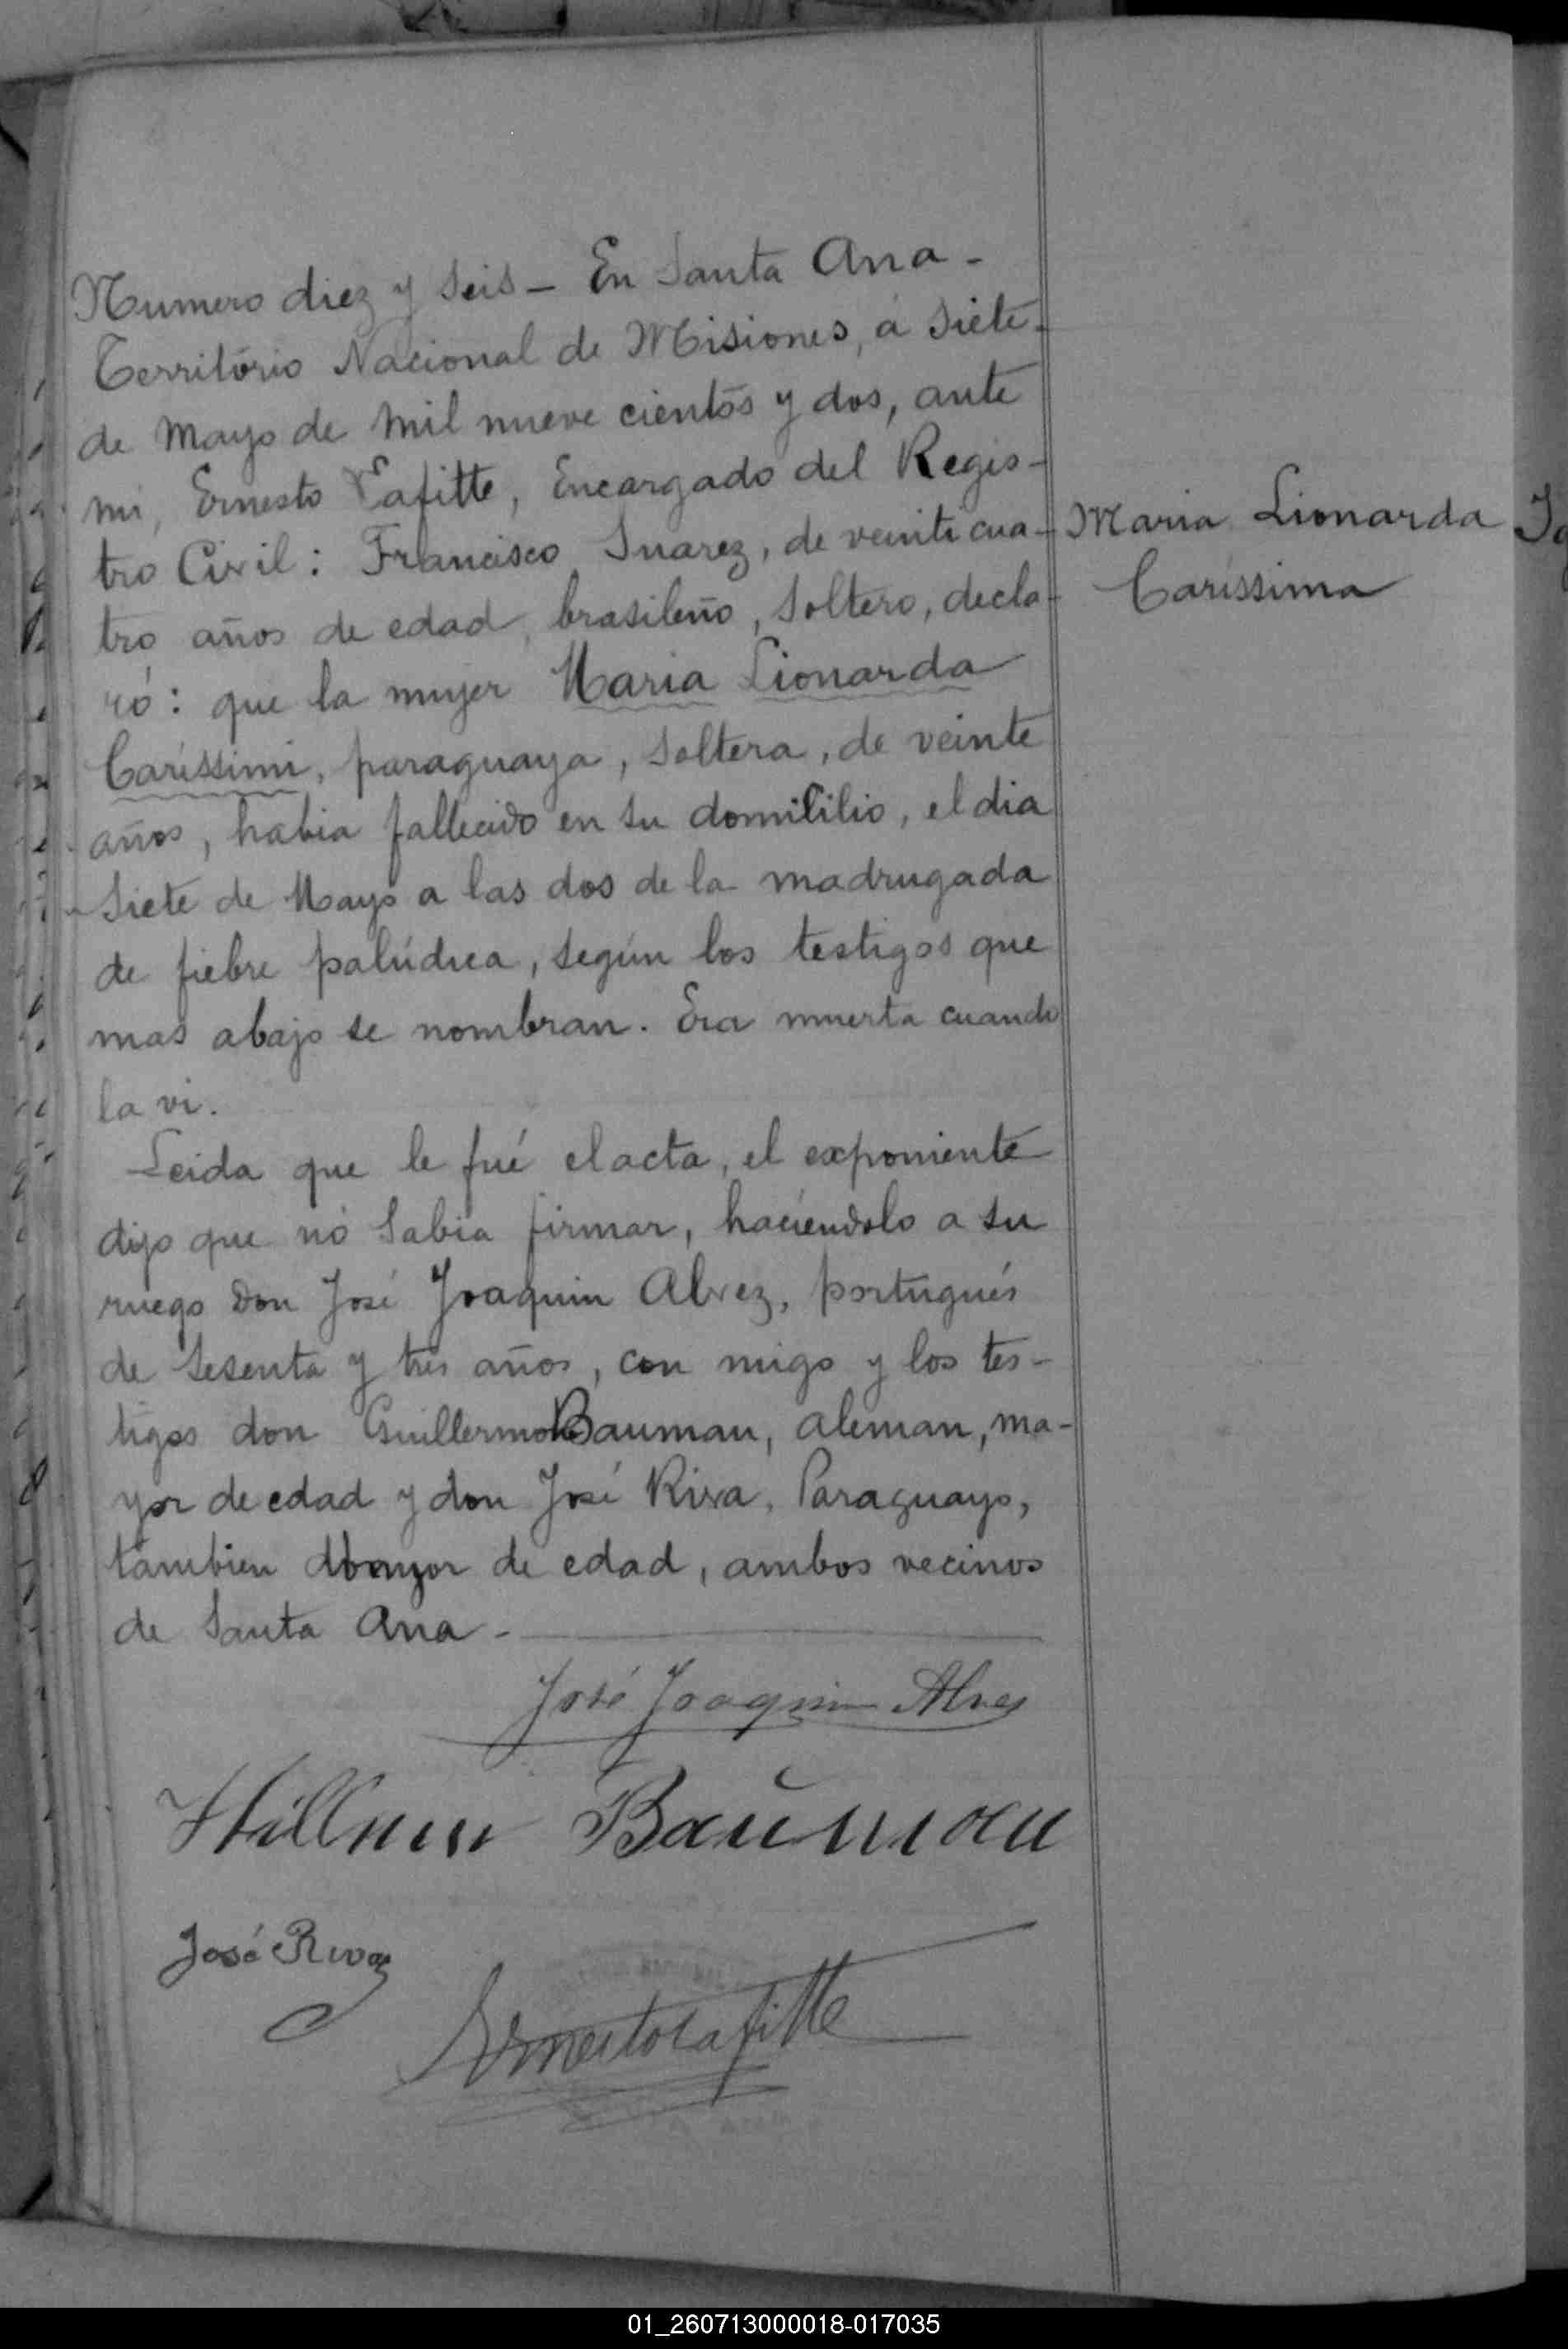 Numero diez y seis – En Santa Ana –
Território Nacional de Misiones, á siete
de Mayo de mil nueve cientos y dos, ante
mi, Ernesto Lafitte, Encargado del Regis-
tro Civil: Francisco Suarez, de veinte cua-
tro años de edad, brasileño, soltero, decla-
ró: que la mujer Maria Lionarda
Caríssimi, paraguaya, soltera, de veinte
años, habia fallecido en su domicilio, el dia
siete de Mayo a las dos de la madrugada
de fiebre palúdica, según los testigos que
mas abajo se nombran. Era muerta cuando
la vi.
Leida que le fué el acta, el exponiente
dijo que nó sabia firmar, haciéndolo a su
ruego Don José Joaquin Alvez, portugués
de sesenta y tres años, con migo y los tes-
tigos don Guillermo Bauman, aleman, ma-
yor de edad y don José Riva, Paraguayo,
tambien mayor de edad, ambos vecinos
de Santa Ana –
Maria Lionarda
Caríssima
José Joaquim Alves
Baŭman
José Riva
Ernesto Lafitte
01_260713000018-017035